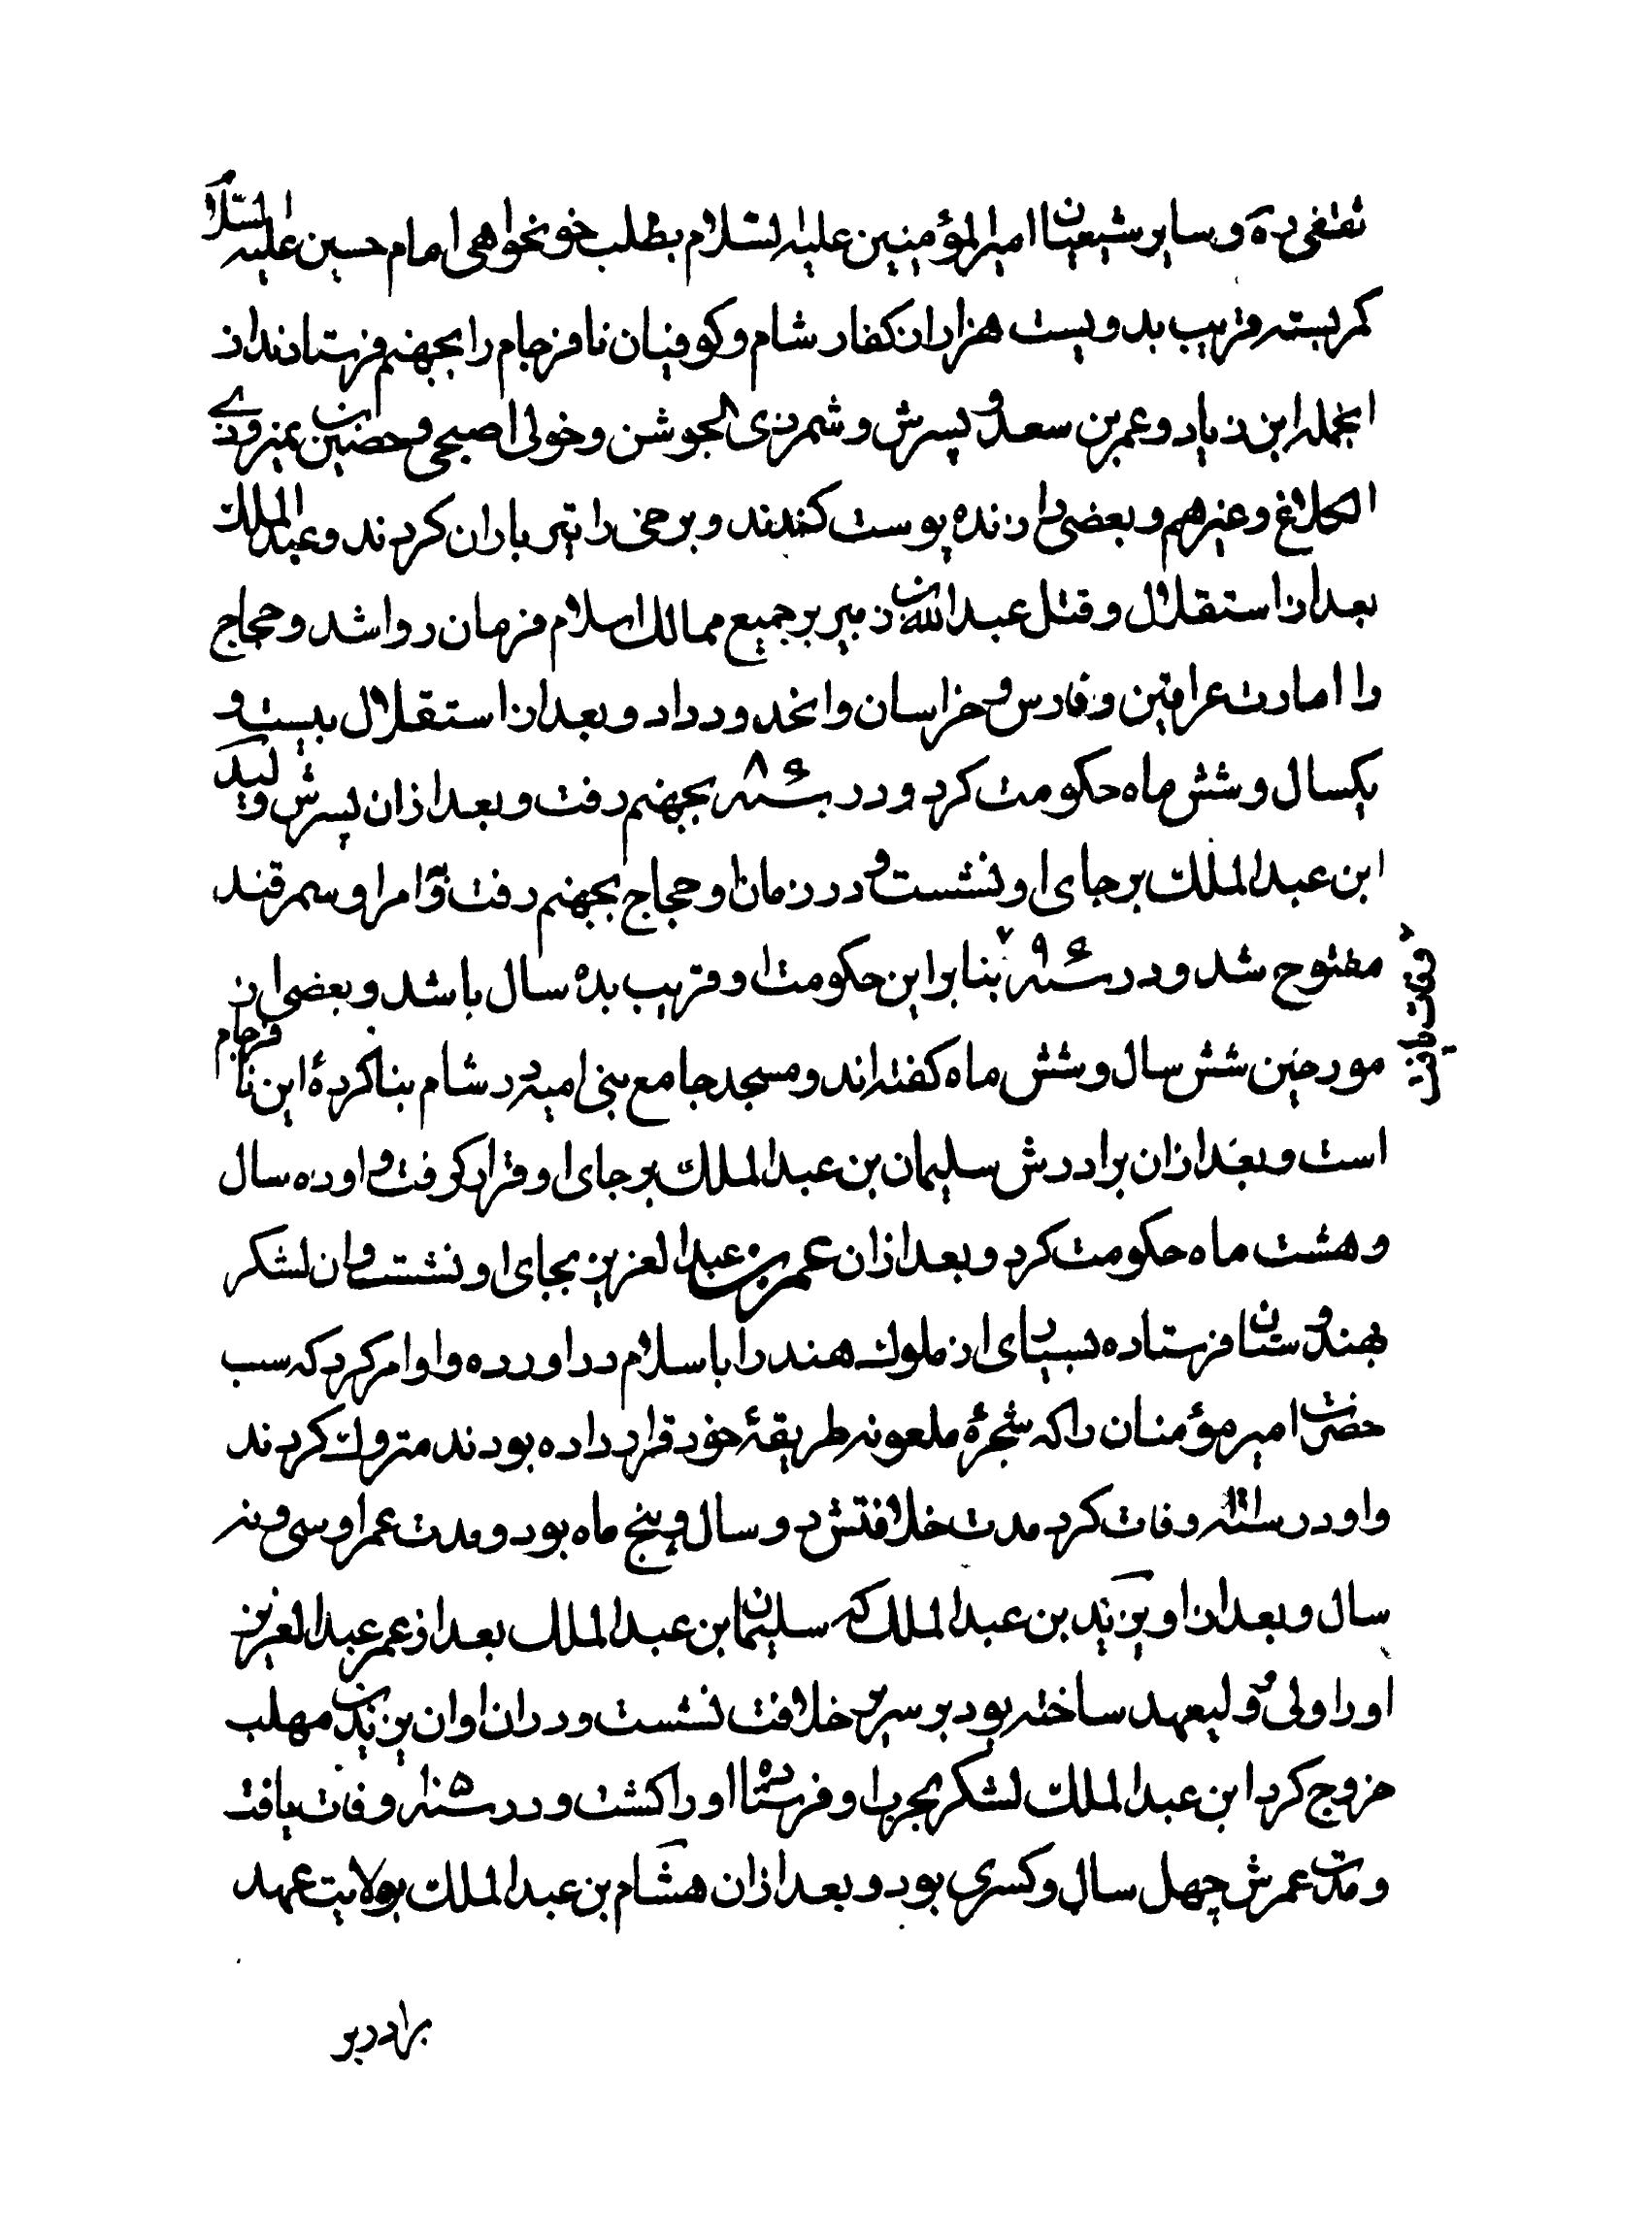 ثقفی ره و سایر شیعیان امیرالمؤمنین علیه السلام بطلب خونخواهی امام حسین علیه السلام
کمر بسته قریب بدویست هزار از کفار شام و کوفیان نافرجام را بجهنم فرستادند از
انجمله ابن زیاد و عمر بن سعد و پسرش و شمر ذی الجوشن و خولی اصبحی و حصین بن نمیر و ذی
الکلاغ و غیرهم و بعضی را زنده پوست کندند و برخی را تیر باران کردند و عبدالملک
بعد از استقلال و قتل عبدالله بن زبیر بر جمیع ممالک اسلام فرمان روا شد و حجاج
را امارت عراقین و فارس و خراسان و انحدود داد و بعد از استقلال بیست و
یکسال و شش ماه حکومت کرد و در سنه ۸۶ بجهنم رفت و بعد از ان پسرش ولید
ابن عبدالملک بر جای او نشست و در زمان او حجاج بجهنم رفت و امرا و سمرقند
مفتوح شد و در سنه ۹۶ بنا براین حکومت او قریب بده سال باشد و بعضی از
وفات یافت
مورخین شش سال و شش ماه کفته اند و مسجد جامع بنی امیه در شام بنا کردۀ این نافرجام
است و بعد از ان برادرش سلیمان بن عبدالملک بر جای او قرار کرفت و او ده سال
و هشت ماه حکومت کرد و بعد از ان عمر بن عبدالعزیز بجای او نشست و ان لشکر
بهندوستان فرستاده بسیاری از ملوک هند را باسلام در اورده و او امر کرد که سب
حضرت امیر مؤمنان را که شجرۀ ملعونه طریقۀ خود قرار داده بودند متروک کردند
و او در سنه وفات کرد مدت خلافتش دو سال و پنج ماه بود و مدت عمر او سی و نه
سال و بعد از او یزید بن عبدالملک که سلیمان بن عبدالملک بعد از عمر عبدالعزیز
او را ولی ولیعهد ساخته بود بر سریر خلافت نشست و در ان اوان یزید بن مهلب
خروج کرد ابن عبدالملک لشکر بحرب او فرستاده او را کشت و در سنه ۱۰۵ وفات یافت
و مدت عمرش چهل سال و کسری بود و بعد از ان هشام بن عبدالملک بولایت عهد
برادر بر